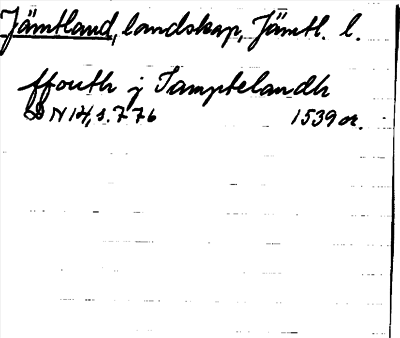 Jämtland, landskap, Jämtl. l.
ffouth j Jamptelandh
DN 14, s. 776 1539 or.